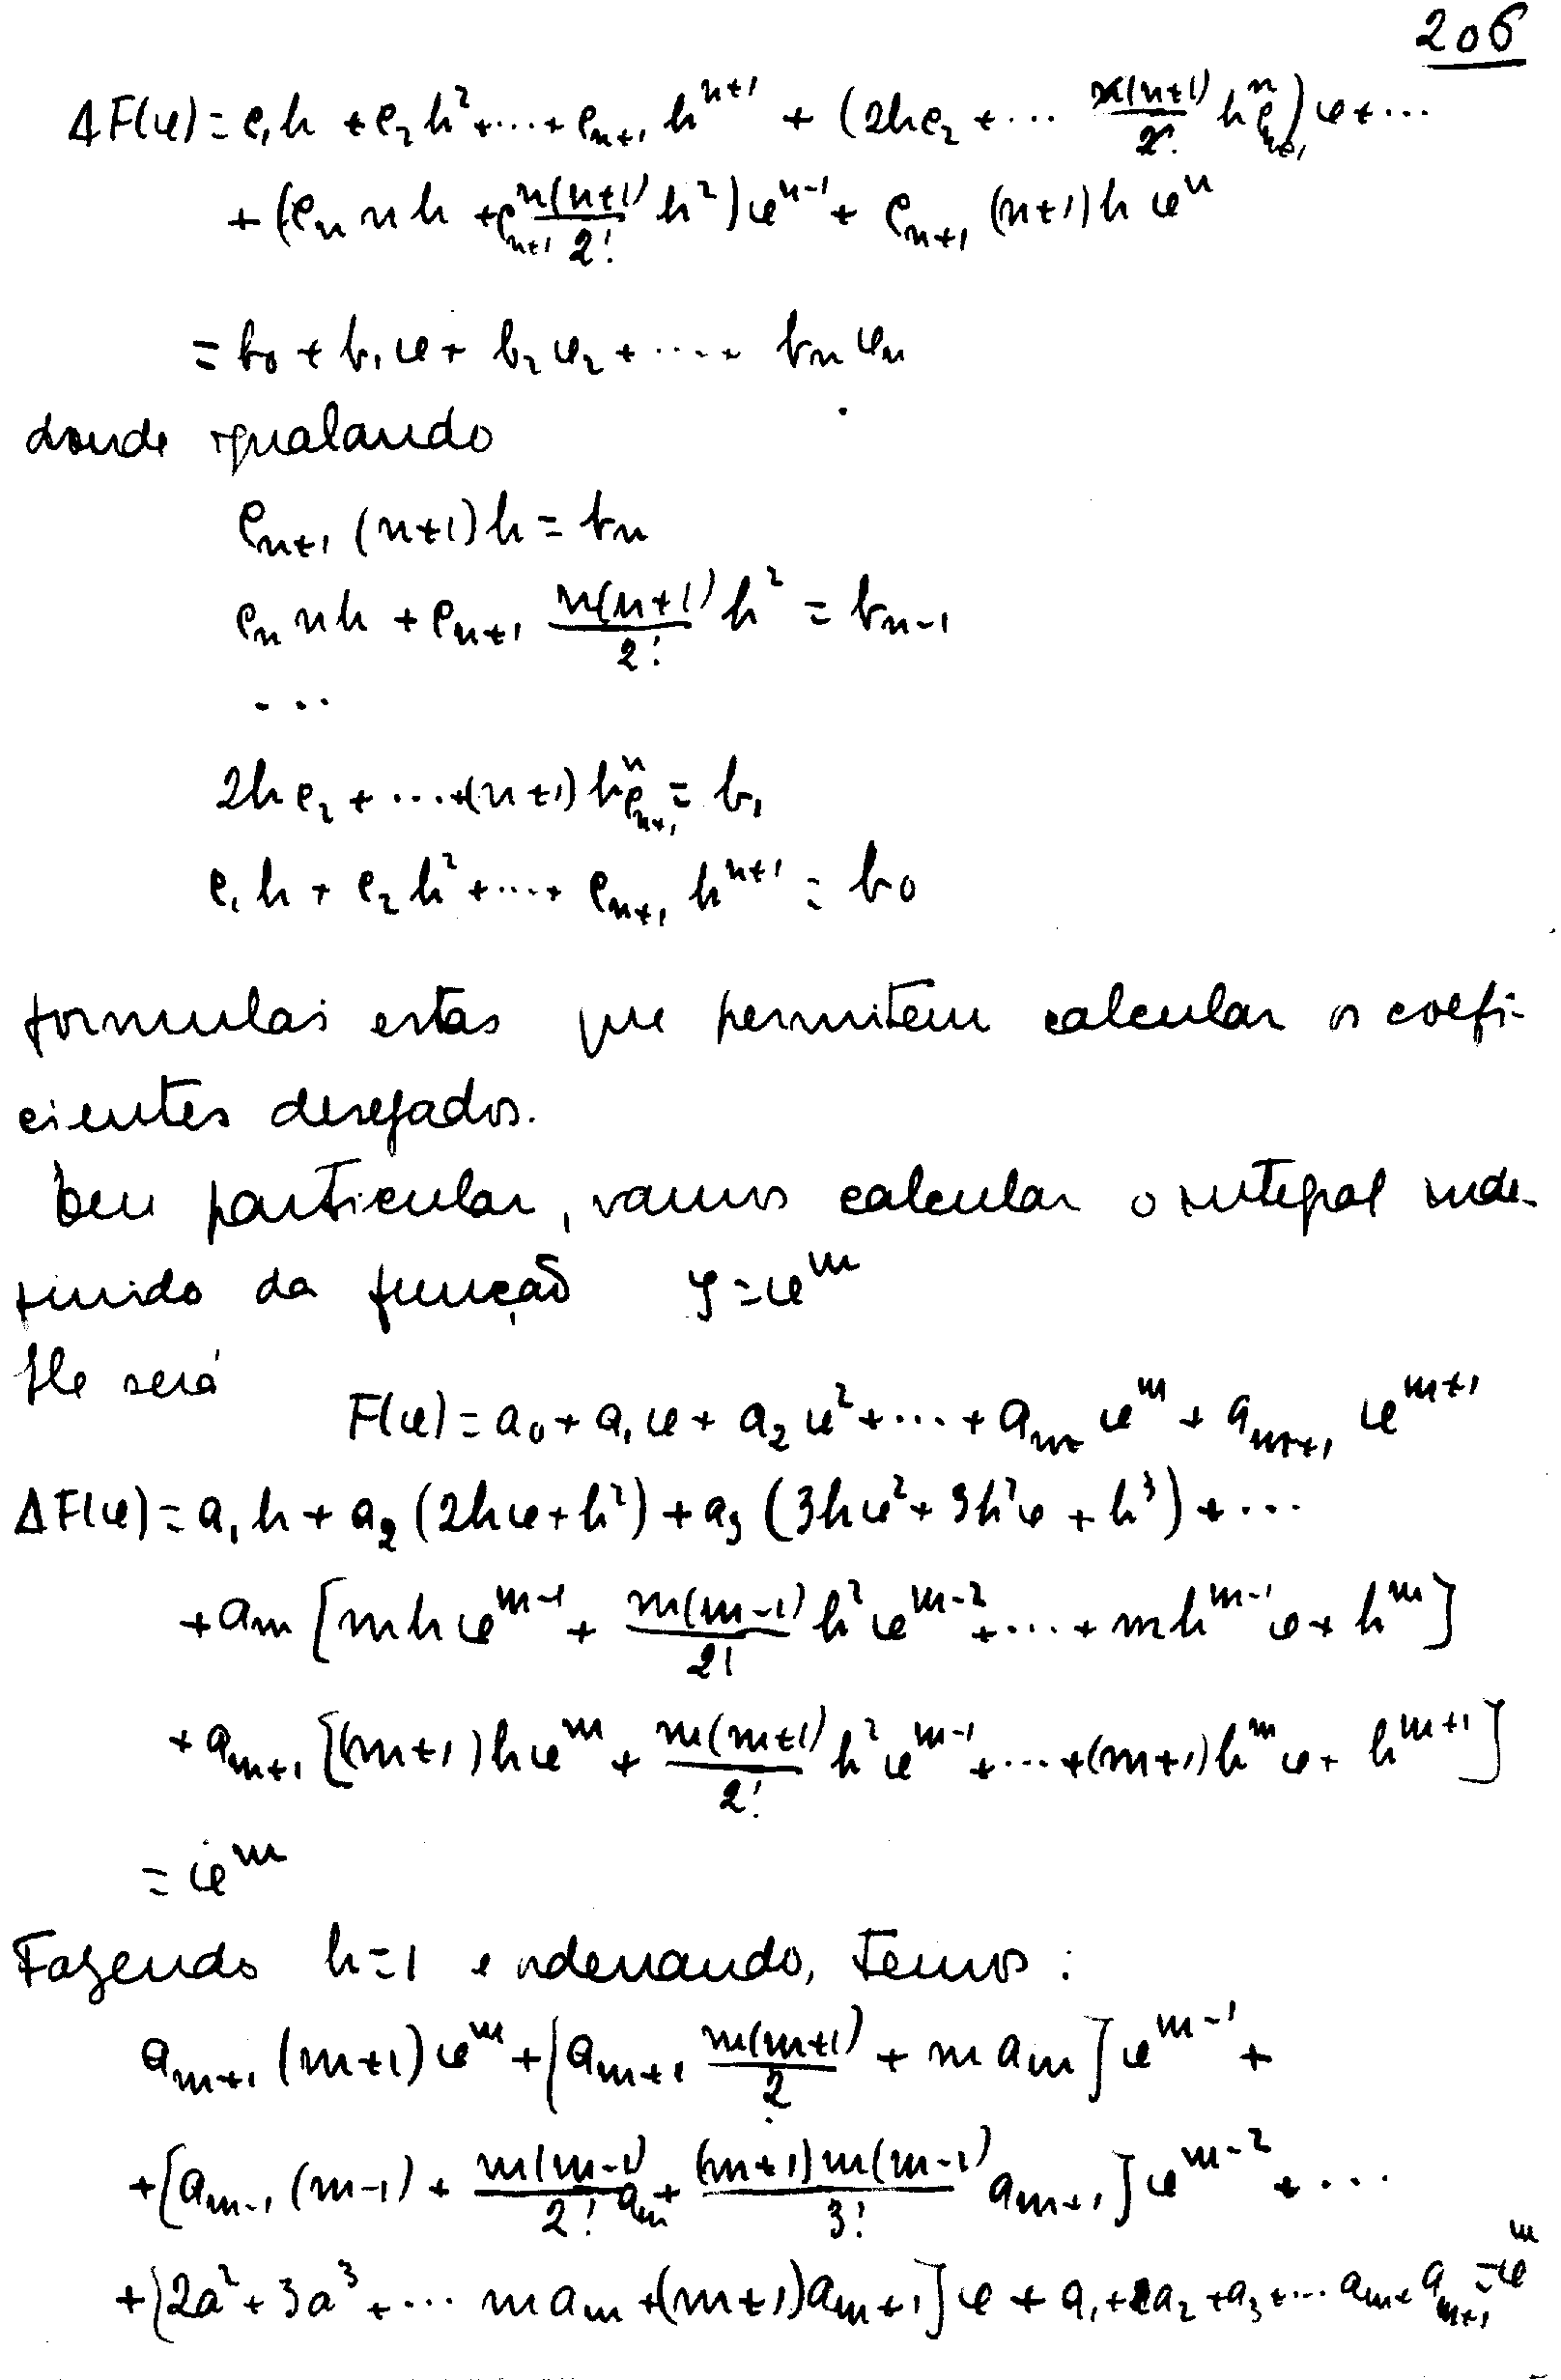 206
ΔF(x) = c₁h + c₂h² + ... + cₙ₊₁ hⁿ⁺¹ + (2hc₂ + ... (n+1) hⁿ cₙ₊₁) x + ...
+ (cₙ n h + cₙ₊₁ n(n+1)/2! h²) xⁿ⁻¹ + cₙ₊₁ (n+1) h xⁿ
= b₀ + b₁x + b₂x₂ + .... bₙxₙ
donde igualando
cₙ₊₁ (n+1) h = bₙ
cₙ n h + cₙ₊₁ n(n+1)/2! h² = bₙ₋₁
...
2hc₂ + ... + (n+1) hⁿ cₙ₊₁ = b₁
c₁h + c₂h² + ... + cₙ₊₁ hⁿ⁺¹ = b₀
formulas estas que permitem calcular os coefi-
cientes desejados.
Em particular, vamos calcular o integral inde-
finido da função y = xᵐ
Ele será
F(x) = a₀ + a₁x + a₂x² + ... + aₘ xᵐ + aₘ₊₁ xᵐ⁺¹
ΔF(x) = a₁h + a₂ (2hx + h²) + a₃ (3hx² + 3h²x + h³) + ...
+ aₘ [m h xᵐ⁻¹ + m(m-1)/2! h² xᵐ⁻² + ... + m hᵐ⁻¹ x + hᵐ]
+ aₘ₊₁ [(m+1) h xᵐ + m(m+1)/2! h² xᵐ⁻¹ + ... + (m+1) hᵐ x + hᵐ⁺¹]
= xᵐ
Fazendo h=1 e ordenando, temos:
aₘ₊₁ (m+1) xᵐ + [aₘ₊₁ m(m+1)/2 + m aₘ] xᵐ⁻¹ +
+ [aₘ₋₁ (m-1) + m(m-1)/2! aₘ + (m+1)m(m-1)/3! aₘ₊₁] xᵐ⁻² + ...
+ [2a² + 3a³ + ... m aₘ + (m+1) aₘ₊₁] x + a₁ + a₂ + a₃ + ... aₘ + aₘ₊₁ = xᵐ